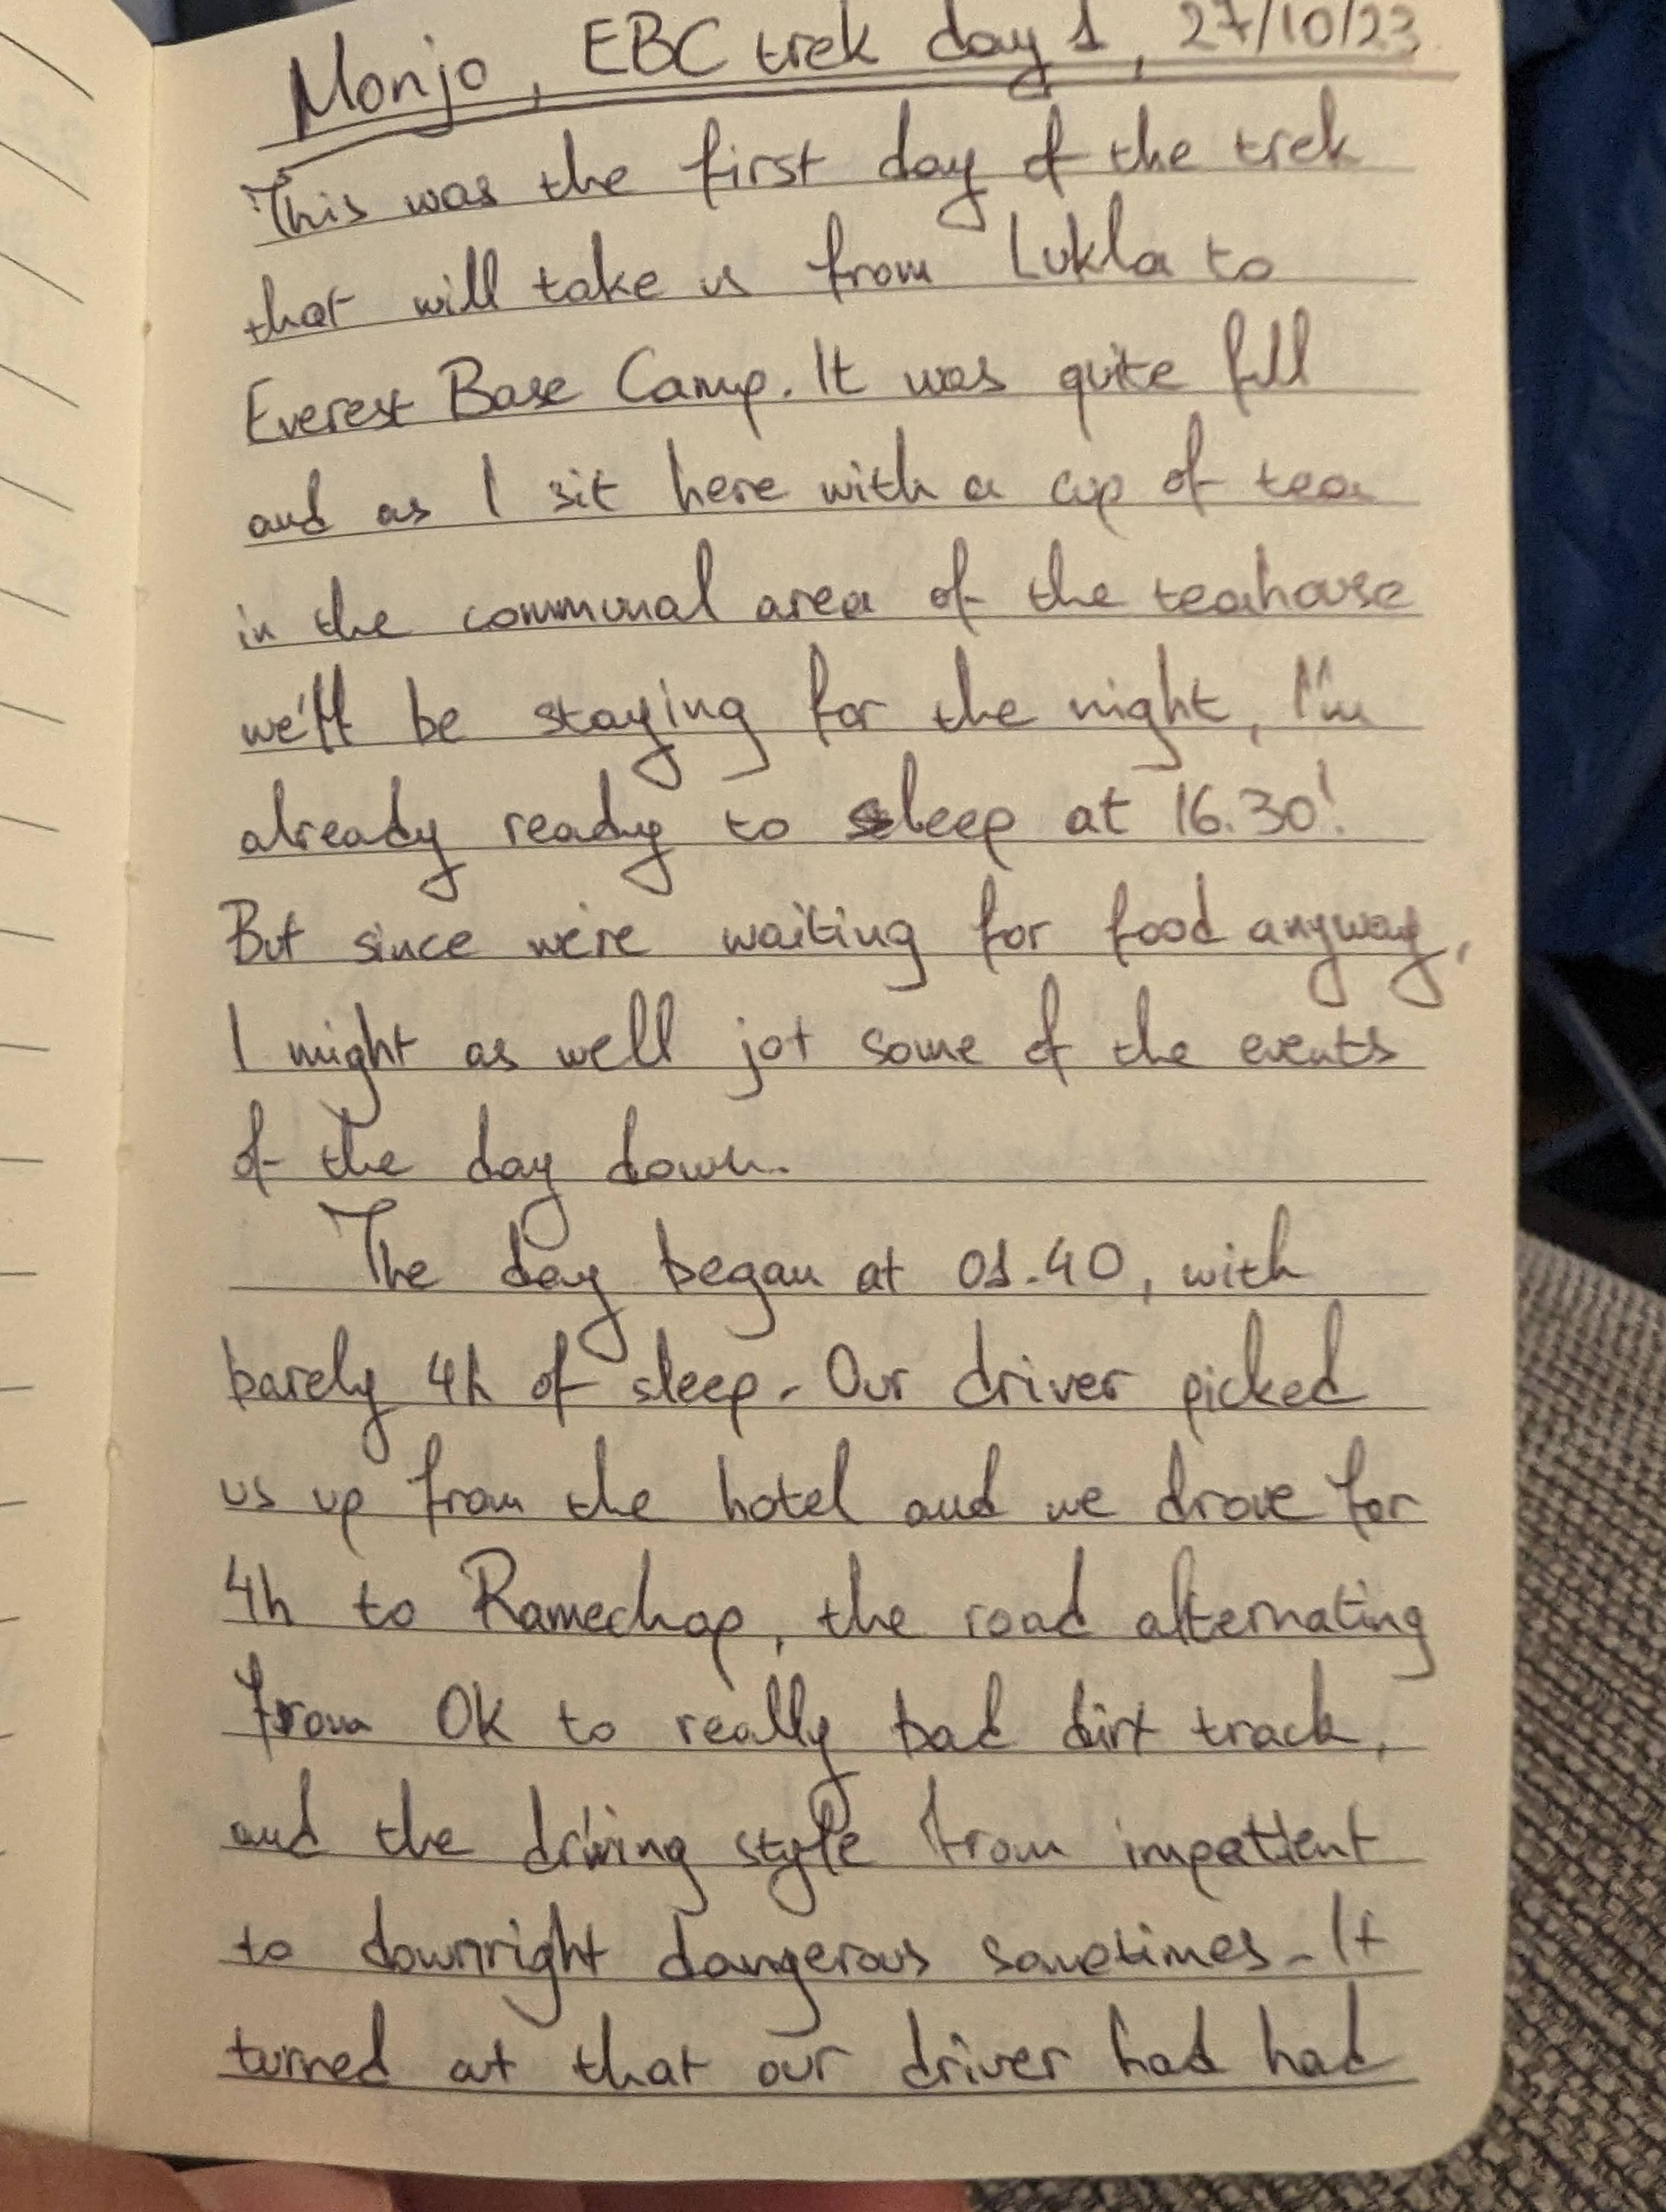 Monjo, EBC trek day 1, 27/10/23
This was the first day of the trek
that will take us from Lukla to
Everest Base Camp. It was quite full
and as I sit here with a cup of tea
in the communal area of the teahouse
we'll be staying for the night, I'm
already ready to sleep at 16.30!
But since we're waiting for food anyway,
I might as well jot some of the events
of the day down.
The day began at 01.40, with
barely 4h of sleep. Our driver picked
us up from the hotel and we drove for
4h to Ramechap, the road alternating
from OK to really bad dirt track,
and the driving style from impatient
to downright dangerous sometimes. It
turned out that our driver had had